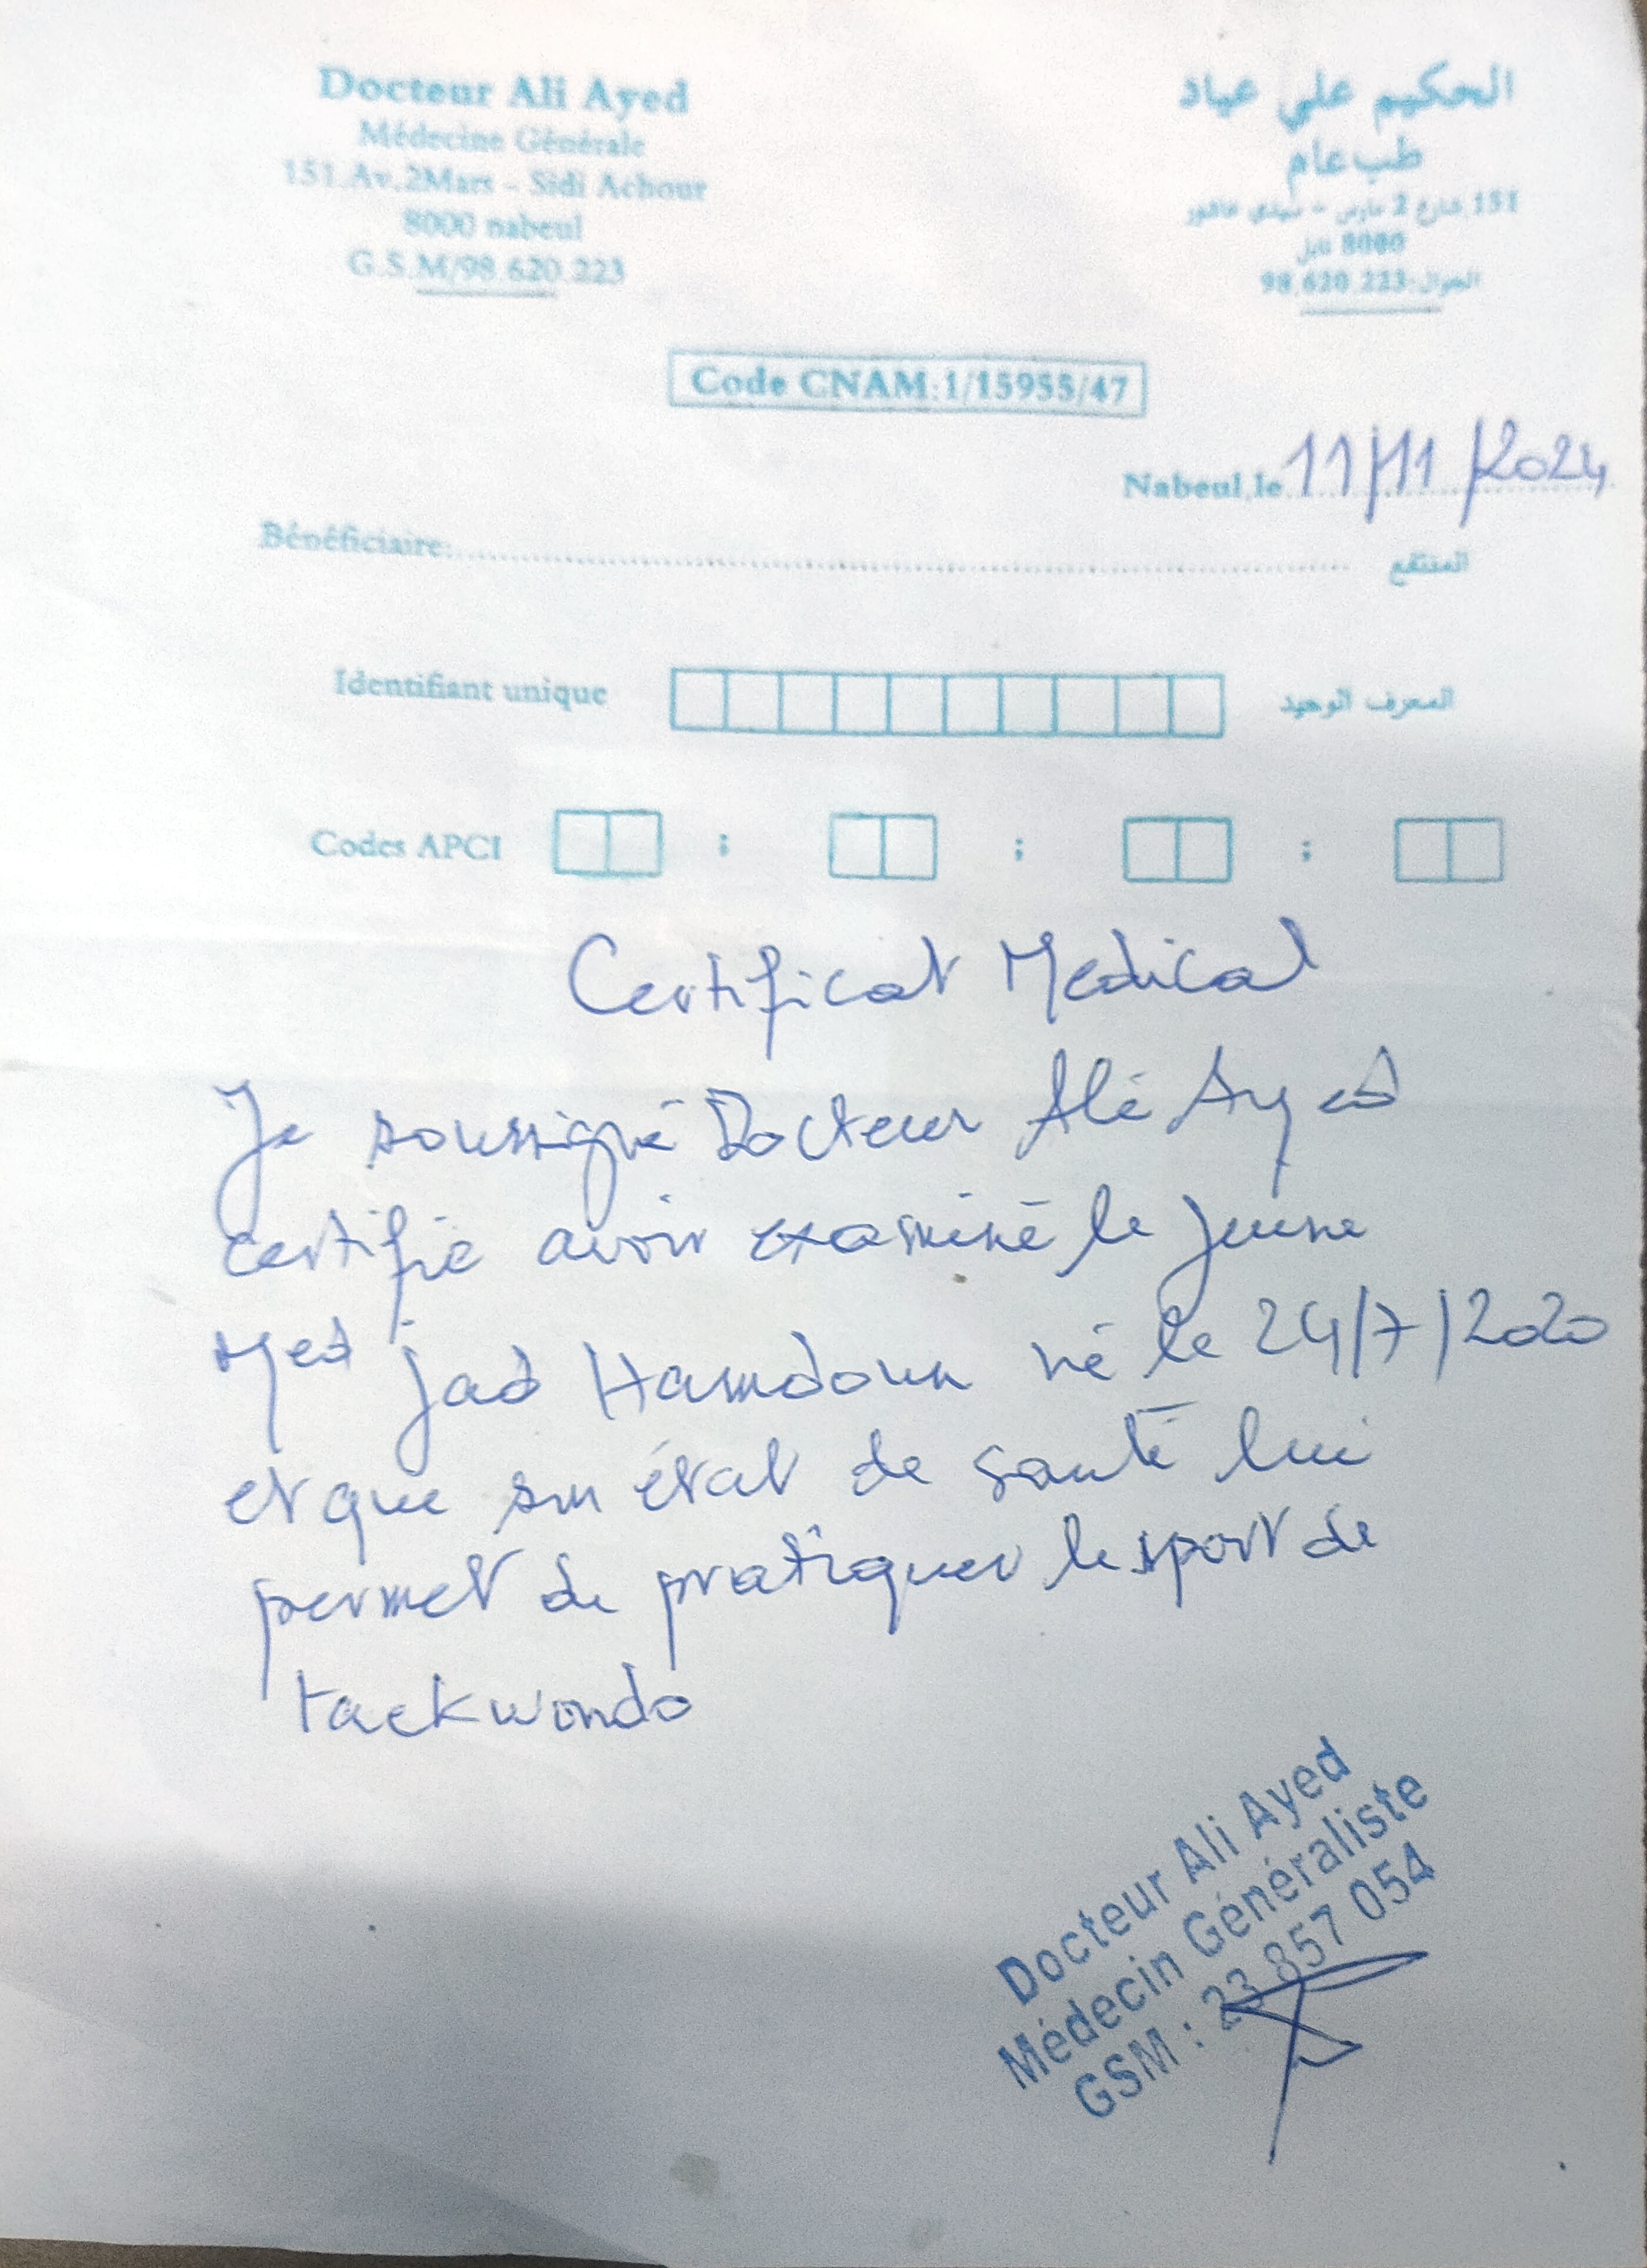 Docteur Ali Ayed
Médecine Générale
151.Av.2Mars - Sidi Achour
8000 nabeul
G.S.M/98.620.223
الحكيم علي عياد
طب عام
151 شارع 2 مارس - سيدي عاشور
8000 نابل
الجوال:98.620.223
Code CNAM:1/15955/47
Nabeul,le 11/11/2024
Bénéficiaire: المنتفع
Identifiant unique المعرف الوحيد
Codes APCI ; ; ;
Certificat Medical
Je soussigné Docteur Ali Ayed
certifie avoir examiné le jeune
Med Jad Hamdoun né le 24/7/2020
et que son état de santé lui
permet de pratiquer le sport de
taekwondo
Docteur Ali Ayed
Médecin Généraliste
GSM : 23 857 054